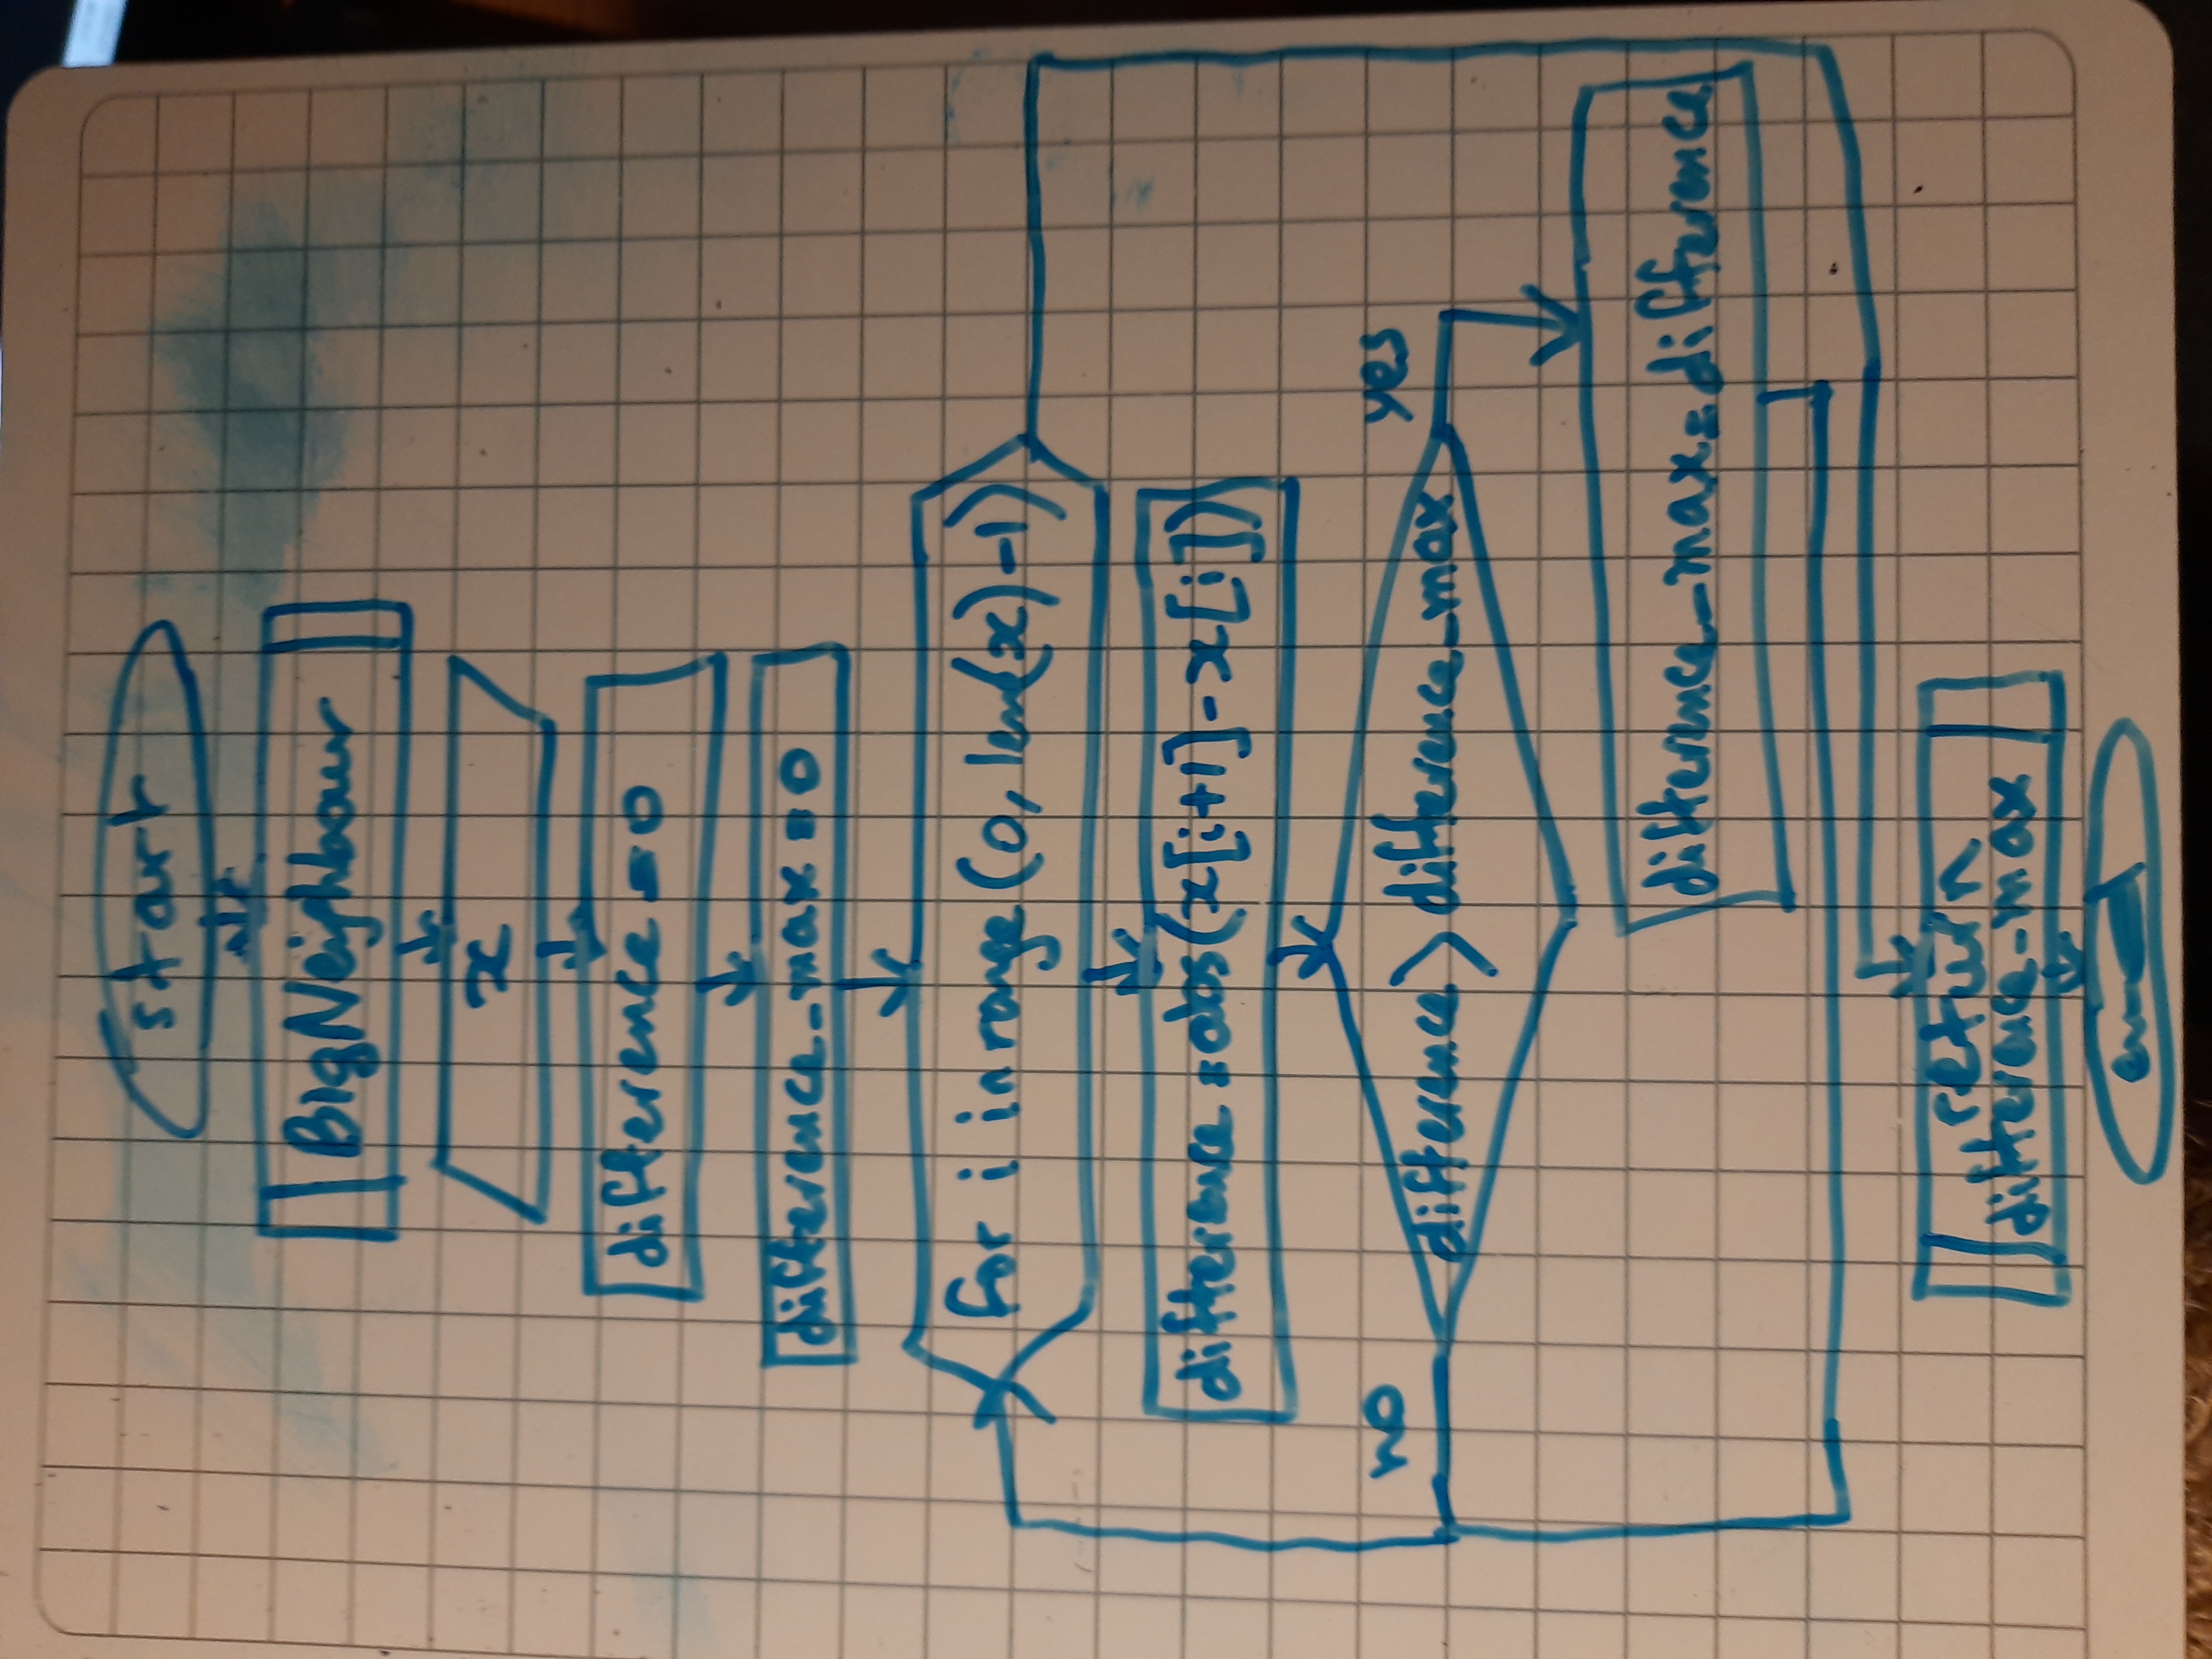 start
BigNeighbour
x
difference = 0
difference_max = 0
for i in range (0, len(x) - 1)
difference = abs(x[i+1] - x[i])
no
yes
difference > difference_max
difference_max = difference
return
difference_max
end